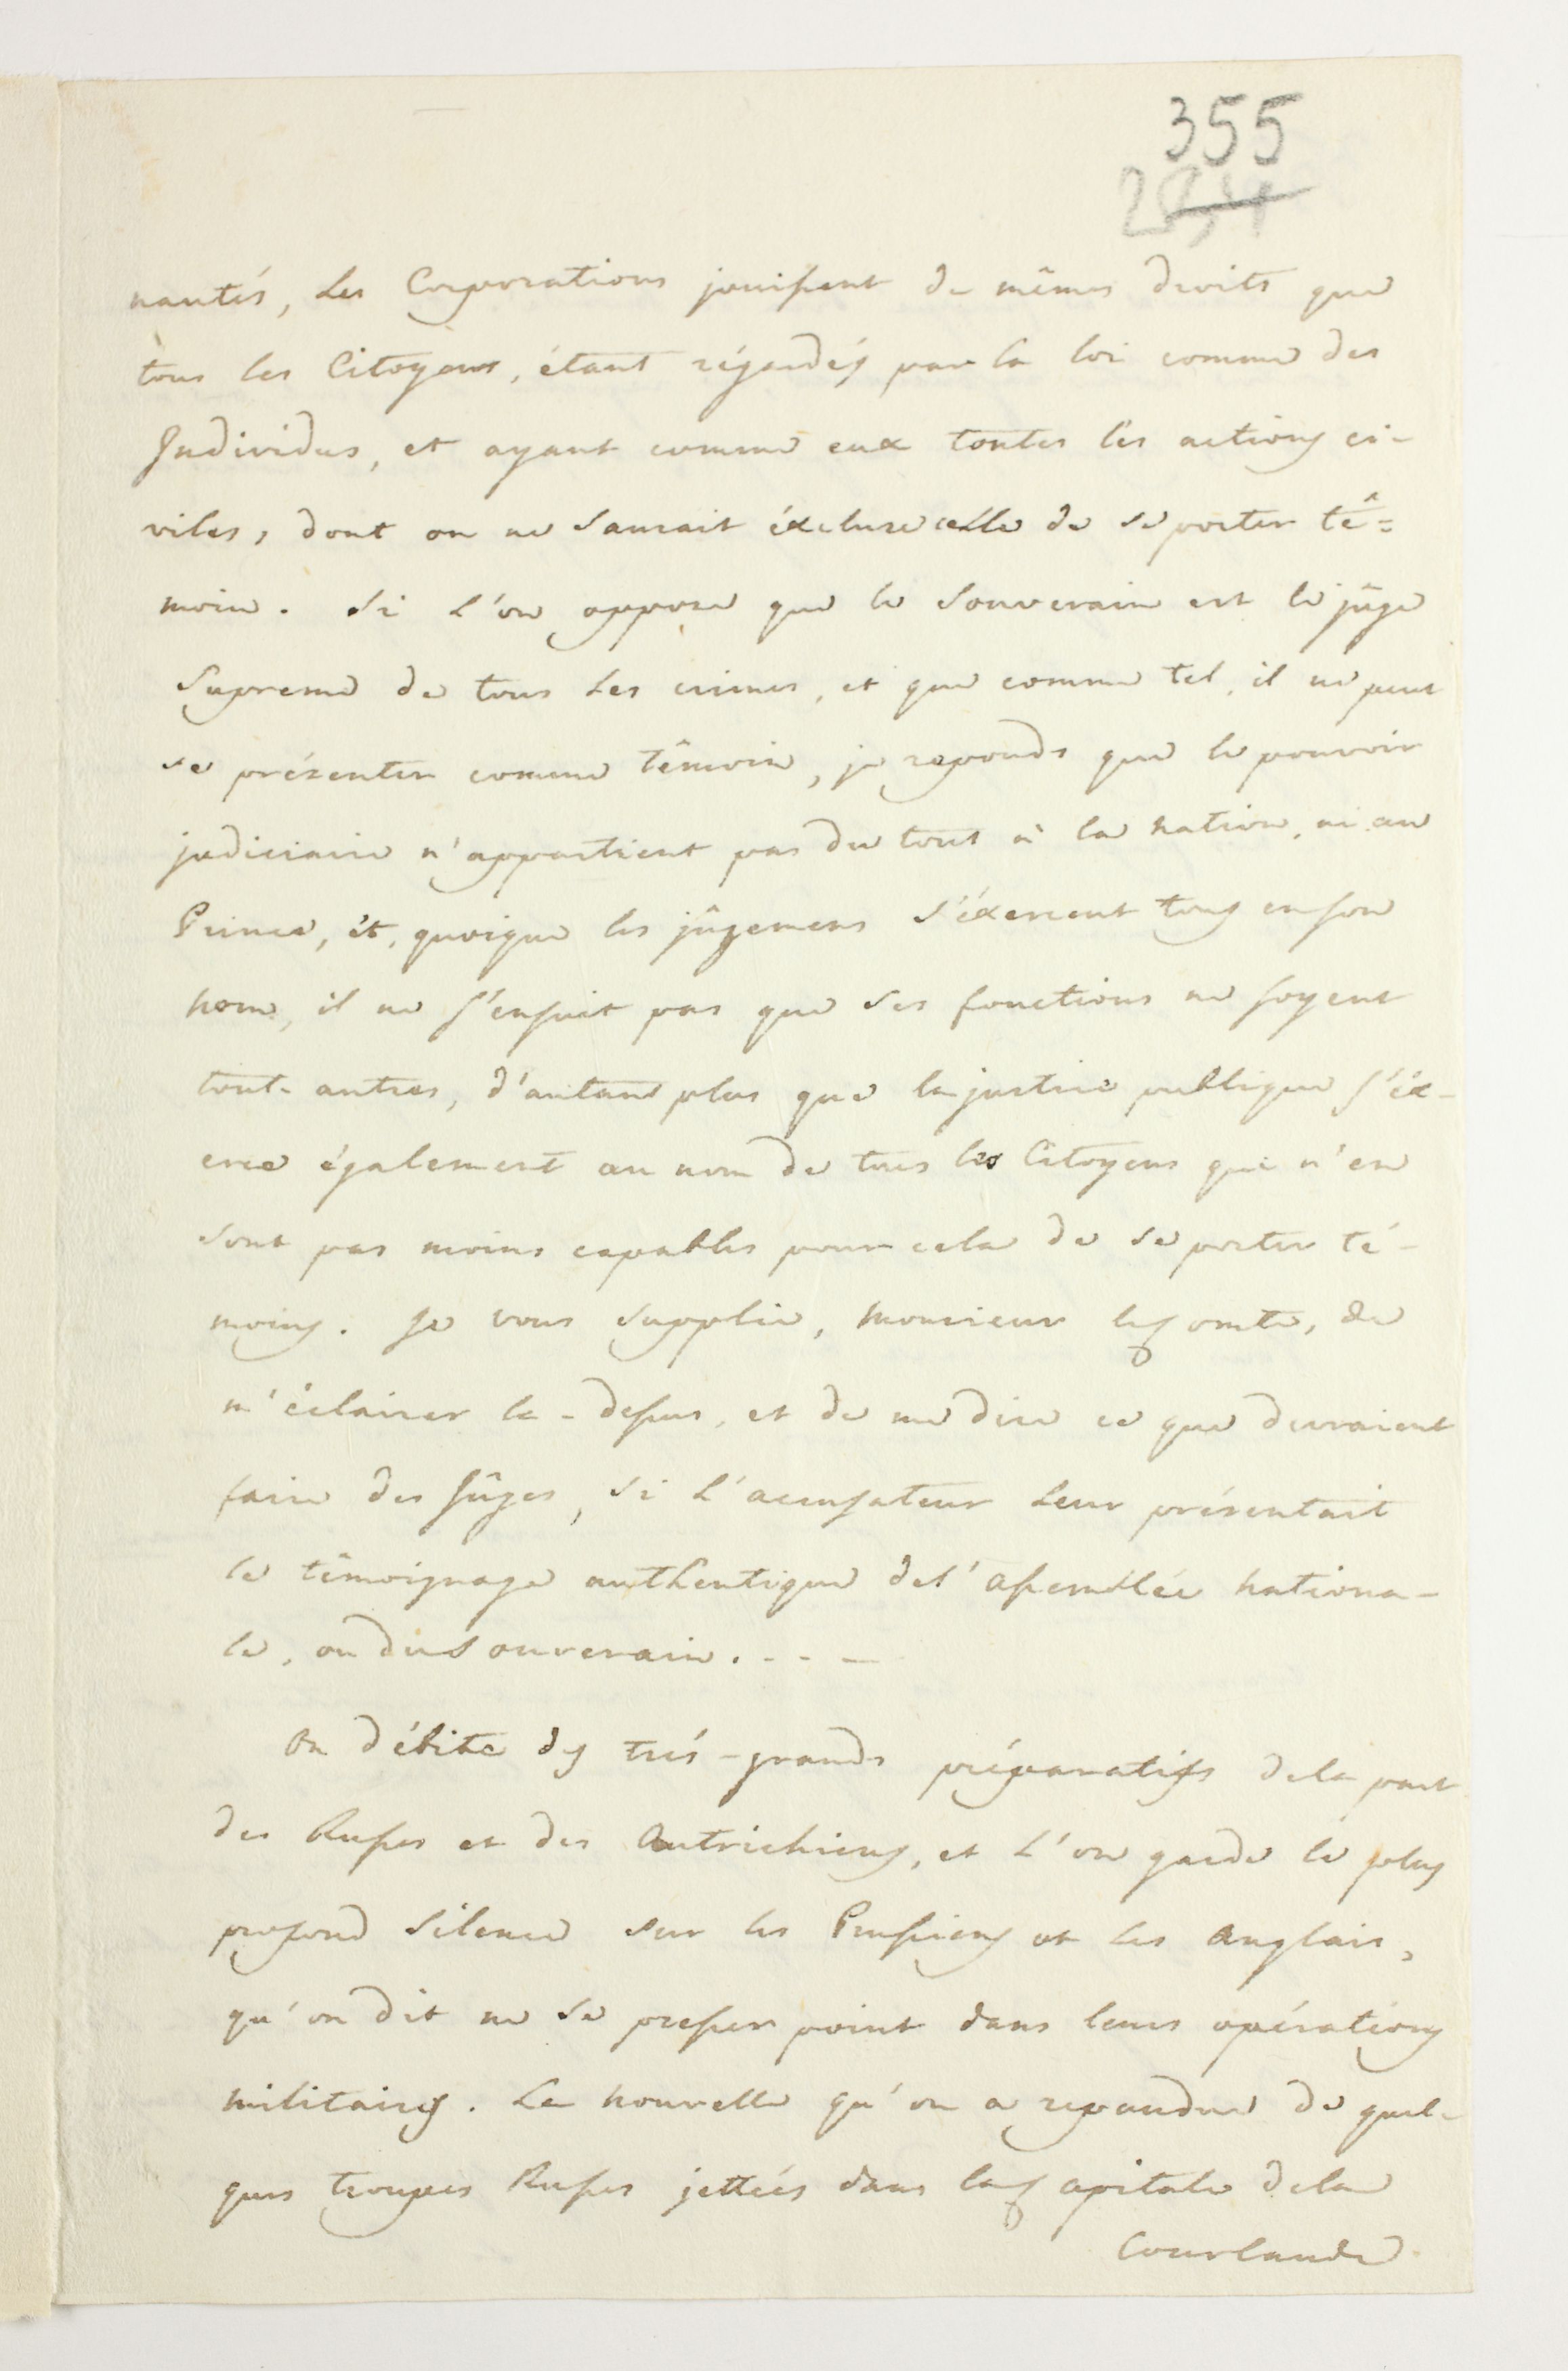 355
nautés, les Corporations jouissent de mêmes droits que
tous les Citoyens, étant régardés par la loi comme des
Individus, et ayant comme eux toutes les actions ci-
viles, dont on ne saurait éxclure celle de se porter tê=
moin. Si l'on oppose que le Souverain est le jûge
Supreme de tous les crimes, et que comme tel, il ne peut
se présenter comme têmoin, je reponds que le pouvoir
judiciaire n'appartient pas du tout à la nation, ni au
Prince, èt, quoique les jûgemens s'éxercent tous en son
nom, il ne s'ensuit pas que ses fonctions ne soyent
tout-autres, d'autant plus que la justice publique s'éx-
erce également au nom de tous les Citoyens qui n'en
sont pas moins capables pour cela de se porter té-
moins. Je vous supplie, monsieur le Comte, de
m'éclairer la-dessus, et de me dire ce que devraient
faire des Jûges, si l'accusateur leur présentait
le têmoignage authentique de l'assemblée nationa-
le, ou du Souverain. - - -
On débite des trés-grands préparatifs de la part
des Russes et des Autrichiens, et l'on garde le plus
profond silence sur les Prussiens et les Anglais,
qu'on dit ne se presser point dans leurs opérations
militaires. La nouvelle qu'on a repandue de quel-
ques troupes Russes jettées dans la Capitale de la
Courlande